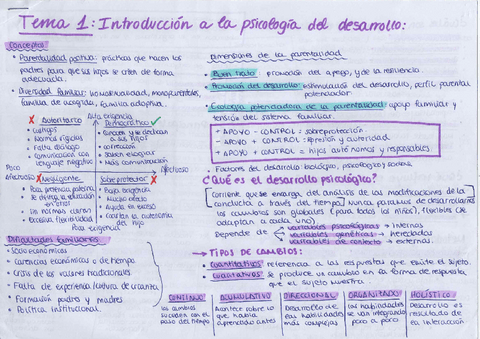 Tema 1: Introducción a la psicología del desarrollo:
Conceptos
• Parentalidad positiva: prácticas que hacen los
padres para que los hijos se críen de forma
adecuada.
• Diversidad familiar: homosexualidad, monoparentales,
familia de acogida, familia adoptiva.
Alta exigencia
X Autoritario
• Castigos
• Normas rígidas
• Falta diálogo
• Comunicación con
lenguaje negativo
Democrático ✓
a sus hijos
• corrección
• Saben escoger
• Más comunicación
Poco
Afectuoso
Afectuoso
X Negligente
• Poca presencia paterna
• Se deriva la educación
en otros
• Sin normas claras
• Excesiva flexibilidad
Sobreprotector X
• Baja exigencia
• Mucho afecto
• Ayuda en exceso
• Coartan la autonomía
del hijo
Poca exigencia
Dificultades familiares
• Socioeconómicos
• Carencias económicas o de tiempo
• Crisis de los valores tradicionales
• Falta de experiencia/cultura de crianza
• Formación padres y madres
• Política institucional.
Dimensiones de la parentalidad
• Buen trato: promoción del apego, y de la resiliencia.
• Promoción del desarrollo: estimulación del desarrollo, perfil parental
potenciador.
• Ecología potenciadora de la parentalidad: apoyo familiar y
tensión del sistema familiar.
- APOYO - CONTROL: sobreprotección
- APOYO + CONTROL: represión y autoridad
+ APOYO + CONTROL = hijos autónomos y responsables.
• Factores del desarrollo biológico, psicológico y social.
¿Qué es el desarrollo psicológico?
Corriente que se encarga del análisis de las modificaciones de la
conducta a través del tiempo. Nunca paramos de desarrollarnos
los cambios son globales (para todos los niños), flexibles (se
adaptan a cada uno).
Depende de variables psicológicas → internas
variables genéticas → hereditarias
variables de contexto → externas.
→ TIPOS DE CAMBIOS:
• Cuantitativos: referencia a las respuestas que emite el sujeto.
• Cualitativos: se produce un cambio en la forma de respuesta
que el sujeto muestra.
CONTINUO
los cambios
suceden con el
paso del tiempo
ACUMULATIVO
Avance sobre lo
que había
aprendido antes
DIRECCIONAL
Desarrollo de
las habilidades
más complejas
ORGANIZADO
las habilidades
se van integrando
poco a poco
HOLÍSTICO
Desarrollo es
resultado de
la interacción